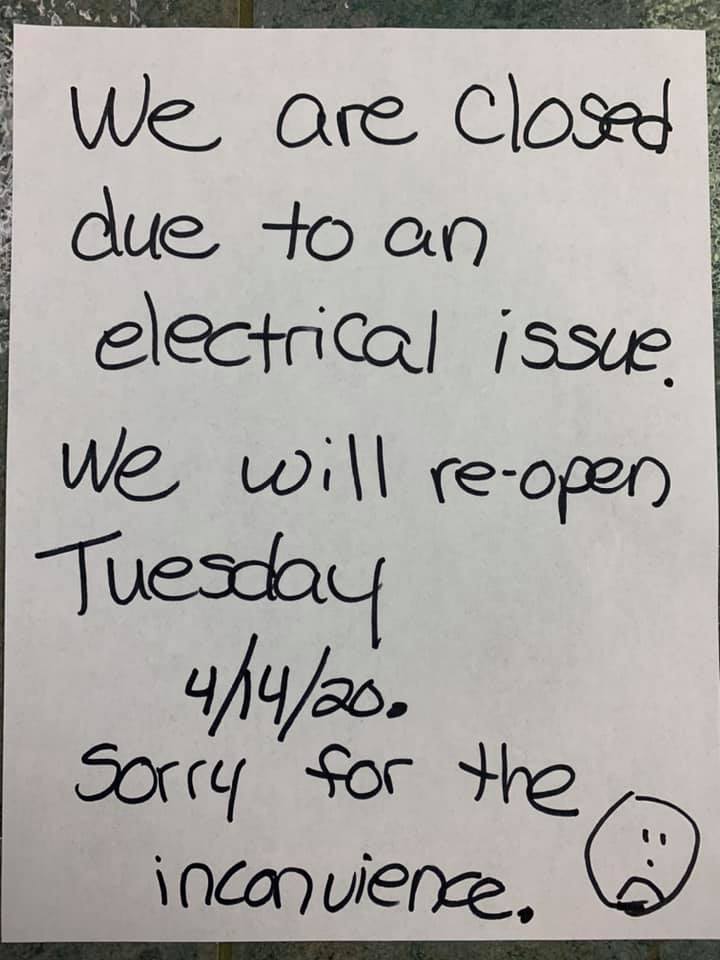 We are closed
due to an
electrical issue.
We will re-open
Tuesday
4/14/20.
Sorry for the
inconvience.